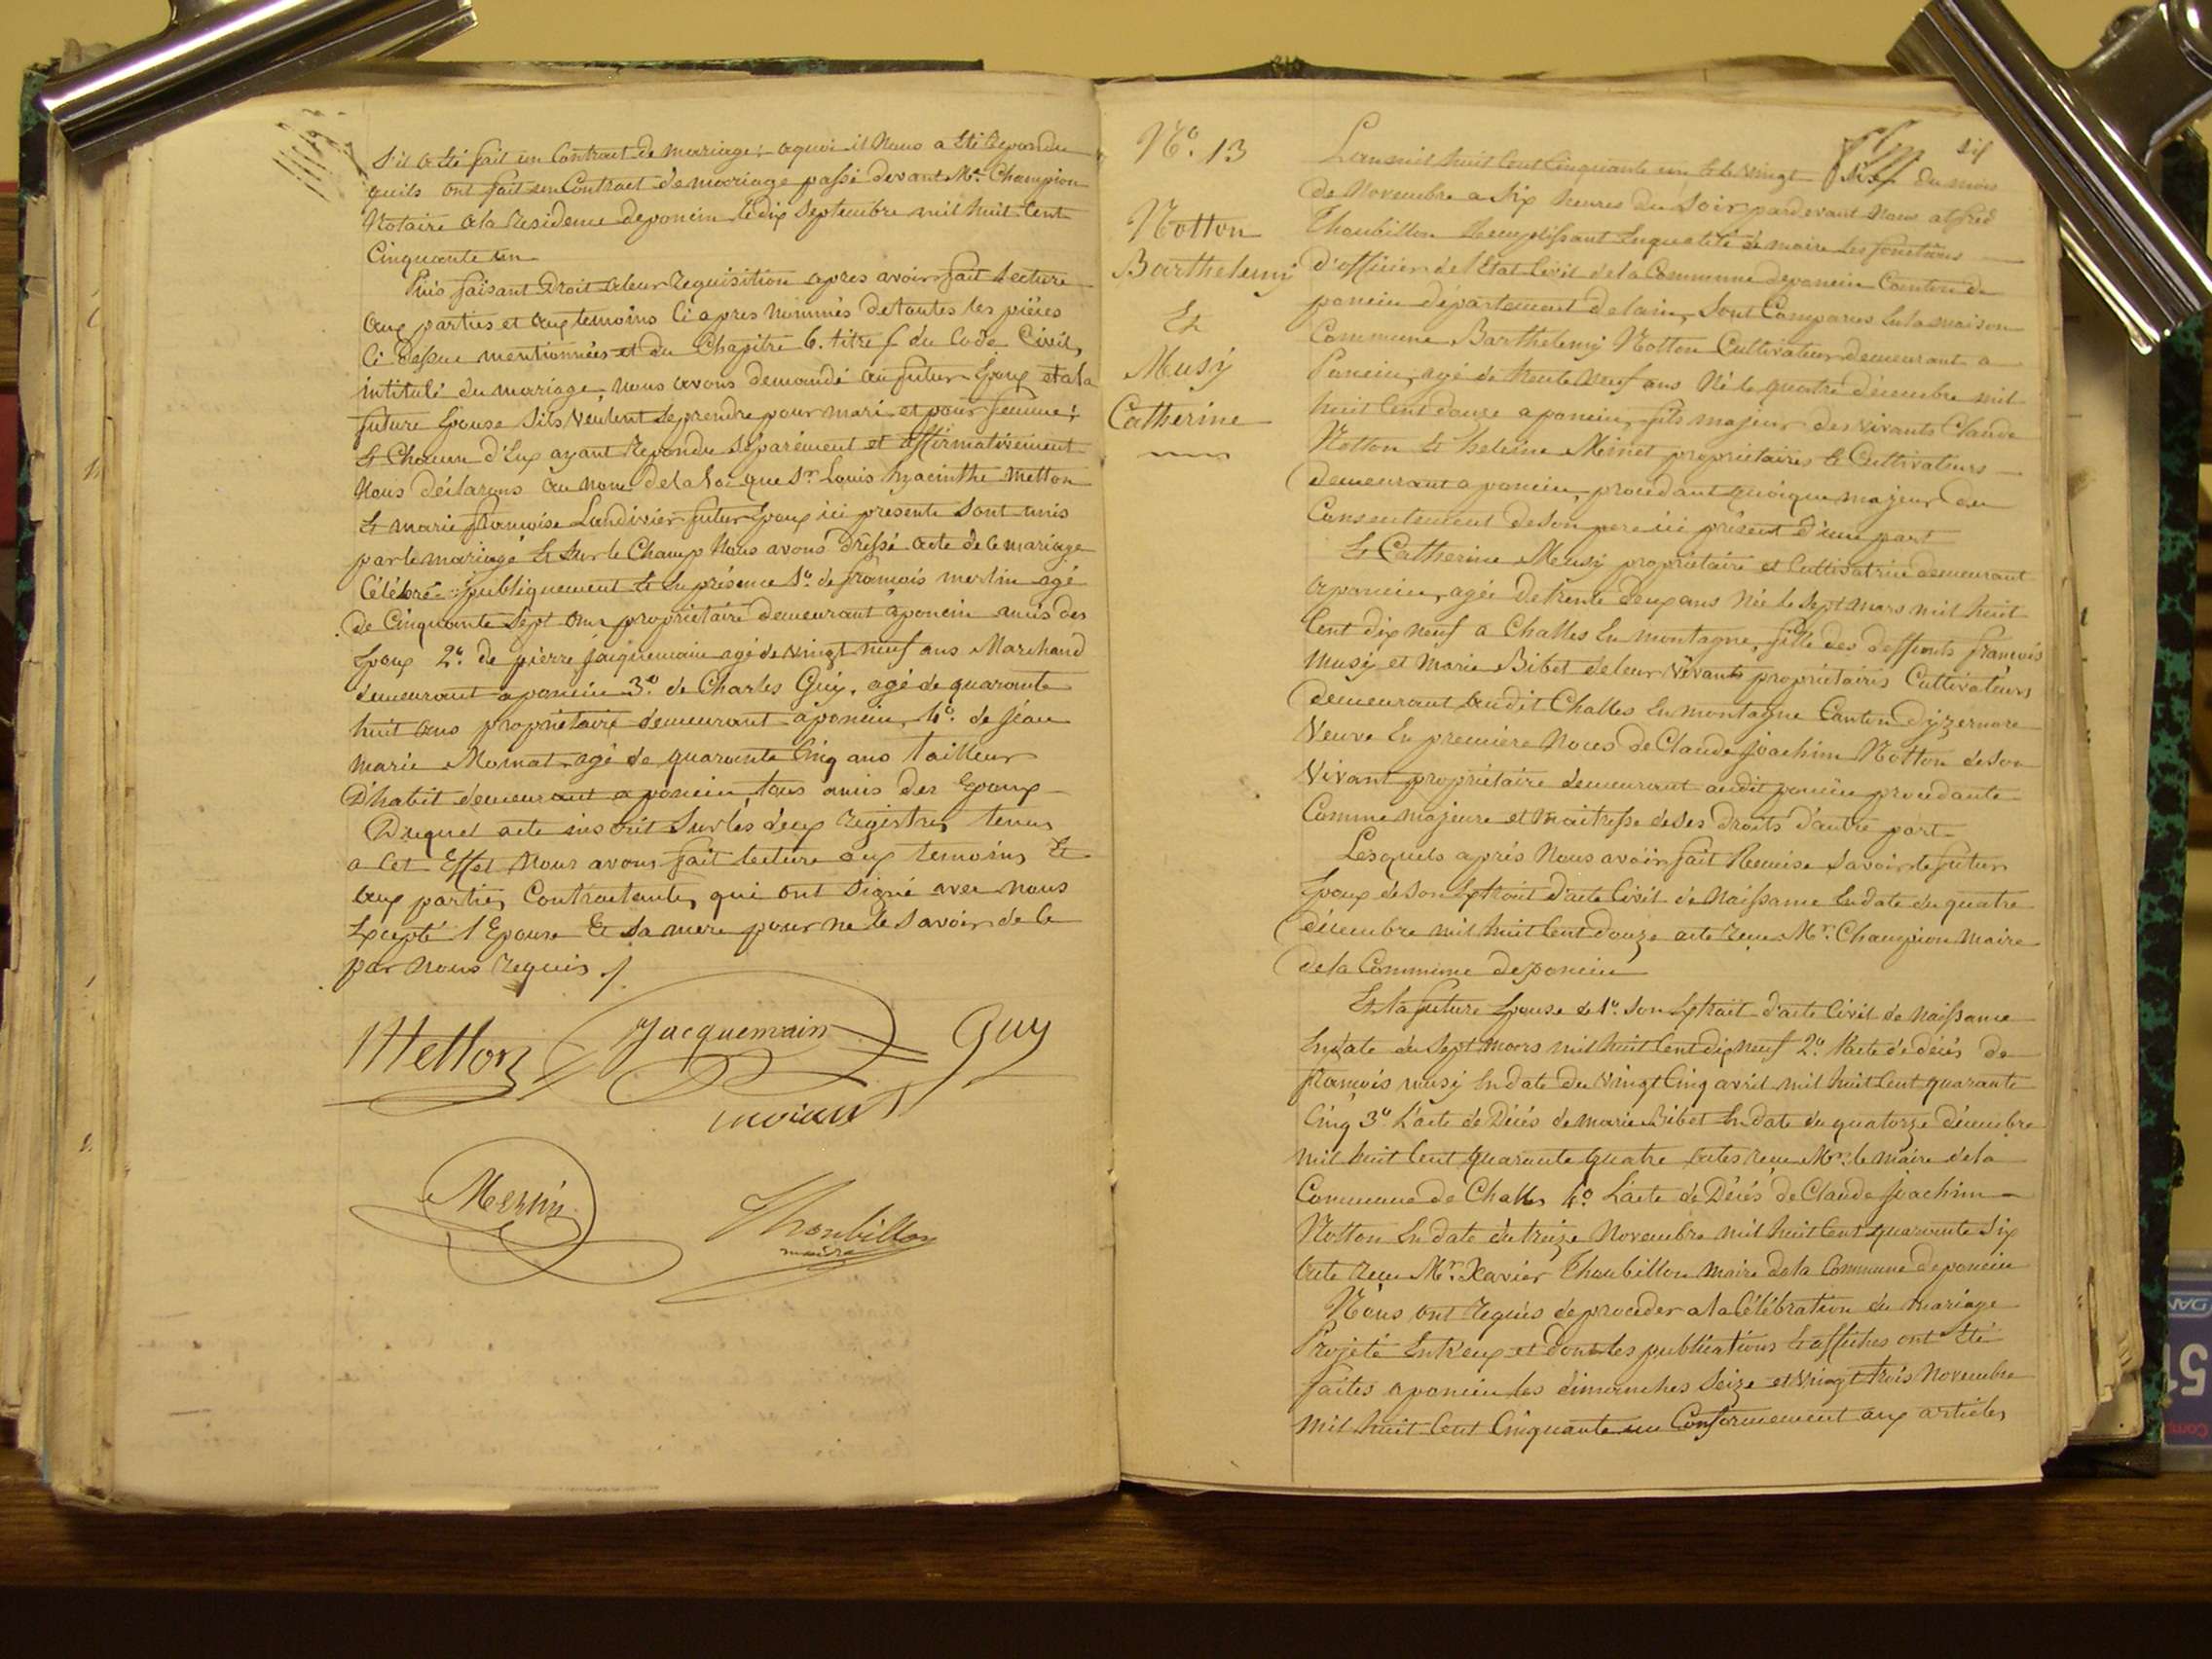 s'il a été fait un Contrat de mariage; aquoi il Nous a été Repondu
quils ont fait un Contract de mariage passé devant Me. Champion
Notaire a la residence deponcin le dix Septembre mil huit Cent
Cinquante un
Puis faisant droit aleur Requisition apres avoir fait lecture
aux parties et aux temoins Ci apres Nommés detoutes les pièces
Ci dessus mentionnées et du Chapitre 6. titre 5 du Code Civil,
intitulé du mariage, nous avons demandé au futur Epoux et a la
future Epouse Sils Veulent se prendre pour mari et pour femme;
Et Chacun d'Eux ayant Repondu séparément et affirmativement
Nous déclarons au nom de la Loi que Sr. Louis hyacinthe Metton
Et marie françoise Landivier futur Epoux ici presents Sont unis
par le mariage Et Sur le Champ Nous avons dressé acte de ce mariage
Célébré publiquement Et En présence 1º. de françois merlin agé
de Cinquante Sept ans propriétaire demeurant aponcin amis des
Epoux 2º. de pierre jacquemain agé de vingt neuf ans Marchand
demeurant a poncin 3º. de Charles Guy, agé de quarante
huit ans propriétaire demeurant aponcin, 4º. de jean
marie Moinat agé de quarante Cinq ans tailleur
D'habit demeurant a poncin, tous amis des Epoux
Duquel acte inscrit Sur les deux registres tenus
a Cet Effet Nous avons fait lecture aux temoins Et
aux parties Contractantes qui ont Signé avec nous
Excepté l'Epouse Et Sa mere pour ne le Savoir de Ce
par Nous requis ./.
Metton Jacquemain Guy
Merlin Thoubillon
maire
Nº. 13
Notton
Barthelemy
Et
Musy
Catherine
Lan mil huit Cent Cinquante un Et le Vingt Six du mois
de Novembre a Six heures du Soir, pardevant Nous alfred
Thoubillon Remplissant En qualité de maire les fonctions
d'officier de l'Etat Civil de la Commune deponcin Canton de
poncin département de lain, Sont Comparus En la maison
Commune Barthelemy Notton Cultivateur demeurant a
Poncin, agé de trente Neuf ans Né le quatre décembre mil
huit Cent douze a poncin, fils majeur des vivants Claude
Notton Et heleine Minet propriétaires Et Cultivateurs
demeurant a poncin, procédant quoique majeur du
Consentement de Son pere ici présent d'une part
Et Catherine Musy propriétaire et Cultivatrice demeurant
aponcin, agée de trente deux ans Née le Sept mars mil huit
Cent dix neuf a Challes En montagne, fille des deffunts françois
Musy et Marie Bibet de leur Vivants propriétaires Cultivateurs
demeurant audit Challes En montagne Canton d'yzernore
Veuve En premiere Noces de Claude joachim Notton de Son
Vivant propriétaire demeurant audit poncin procédante
Comme majeure et Maitresse de Ses Droits d'autre part
Lesquels après Nous avoir fait Remise Savoir le futur
Epoux de Son Extrait d'acte Civil de Naissance En date du quatre
décembre mil huit Cent douze acte reçu Mr. Champion Maire
de la Commune de poncin
Et la future Epouse de 1º. Son Extrait d'acte Civil de Naissance
En date du Sept mars mil huit Cent dix neuf 2º. l'acte de décés de
françois musy En date du Vingt Cinq avril mil huit Cent quarante
Cinq 3º. L'acte de Décés de marie Bibet En date du quatorze décembre
mil huit Cent quarante quatre actes reçu Mr. le Maire de la
Commune de Challes 4º. L'acte de Décés de Claude Joachim
Notton En date du treize Novembre mil huit Cent quarante Six
acte reçu Mr. Xavier Thoubillon maire dela Commune de poncin
Nous ont requis de procéder a la Célébration du mariage
Projeté Entr'eux et dont les publications Et affiches ont Eté
faites a poncin les dimanches Seize et Vingt trois Novembre
mil huit Cent Cinquante un Conformement aux articles